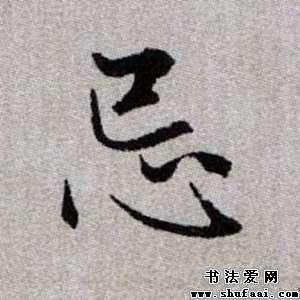 忌
书法爱网
www.shufaai.com